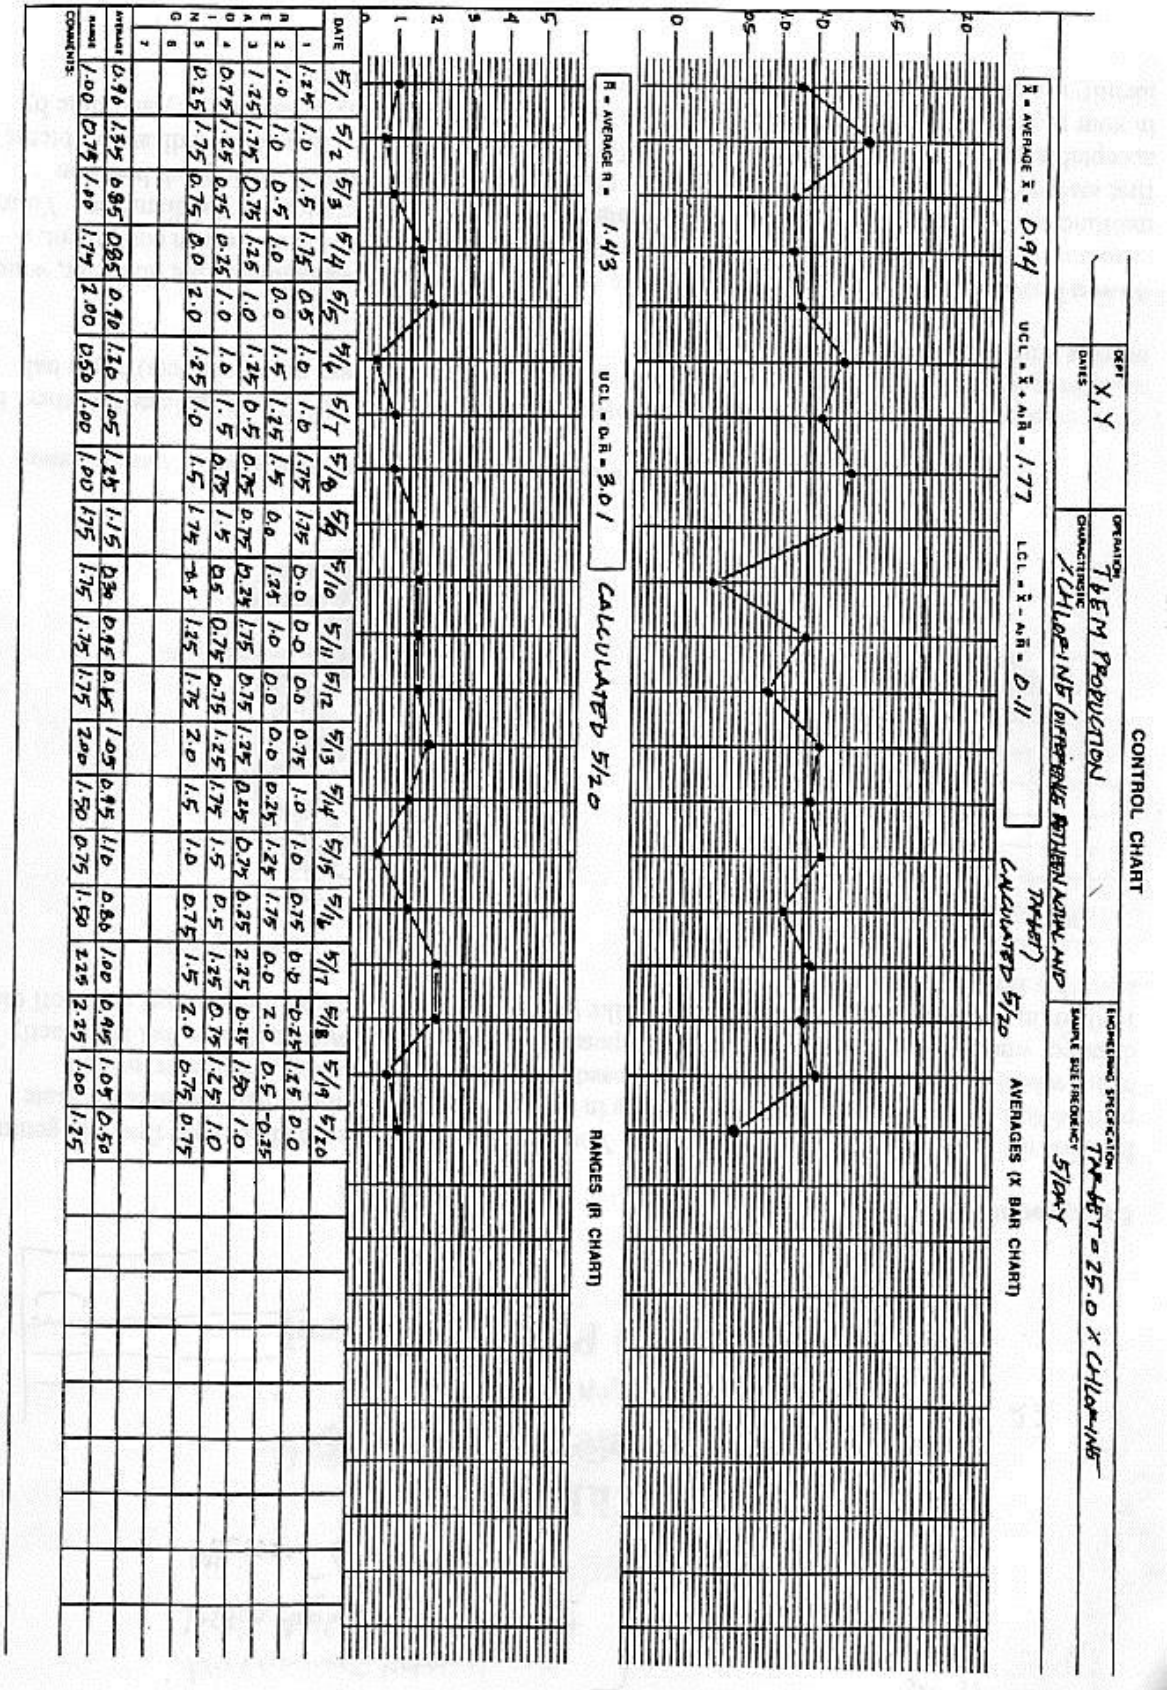 CONTROL CHART
DEPT X, Y
OPERATION T&EM PRODUCTION
ENGINEERING SPECIFICATION TARGET = 25.0 % CHLORINE
DATES
CHARACTERISTIC % CHLORINE (DIFFERENCE BETWEEN ACTUAL AND TARGET)
SAMPLE SIZE/FREQUENCY 5/DAY
X̿ = AVERAGE X̄ = 0.94 UCL = X̿ + A₂R̄ = 1.77 LCL = X̿ - A₂R̄ = 0.11 CALCULATED 5/20 AVERAGES (X BAR CHART)
2.0
1.5
1.0
0.5
0
R̄ = AVERAGE R = 1.43 UCL = D₄R̄ = 3.01 CALCULATED 5/20 RANGES (R CHART)
5
4
3
2
1
0
DATE 5/1 5/2 5/3 5/4 5/5 5/6 5/7 5/8 5/9 5/10 5/11 5/12 5/13 5/14 5/15 5/16 5/17 5/18 5/19 5/20
READING
1 1.25 1.0 1.5 1.75 0.5 1.0 1.0 1.75 1.75 0.0 0.0 0.0 0.75 1.0 1.0 0.75 0.0 -0.25 1.25 0.0
2 1.0 1.0 0.5 1.0 0.0 1.5 1.25 1.5 0.0 1.25 1.0 0.0 0.0 0.25 1.25 1.75 0.0 2.0 0.5
3 1.25 1.75 0.75 1.25 1.0 1.25 0.5 0.75 0.75 0.25 1.75 0.75 1.25 0.25 0.75 0.25 2.25 0.25
4 0.75 1.25 0.75 0.25 1.0 1.0 1.5 0.75 1.5 0.5 0.75 0.75 1.25 1.75 1.5 0.5 1.25 0.75 1.25 1.0
5 0.25 1.75 0.75 0.0 2.0 1.25 1.0 1.5 1.75 -0.5 1.25 1.75 2.0 1.5 1.0 0.75 1.5 2.0 0.75 0.75
6
7
AVERAGE 0.90 1.35 0.85 0.85 0.90 1.20 1.05 1.25 1.15 0.30 0.95 0.65 1.05 0.95 1.10 0.80 1.00 0.95 1.05 0.50
RANGE 1.00 0.75 1.00 1.75 2.00 0.50 1.00 1.00 1.75 1.75 1.75 1.75 2.00 1.50 0.75 1.50 2.25 2.25 1.00 1.25
COMMENTS: